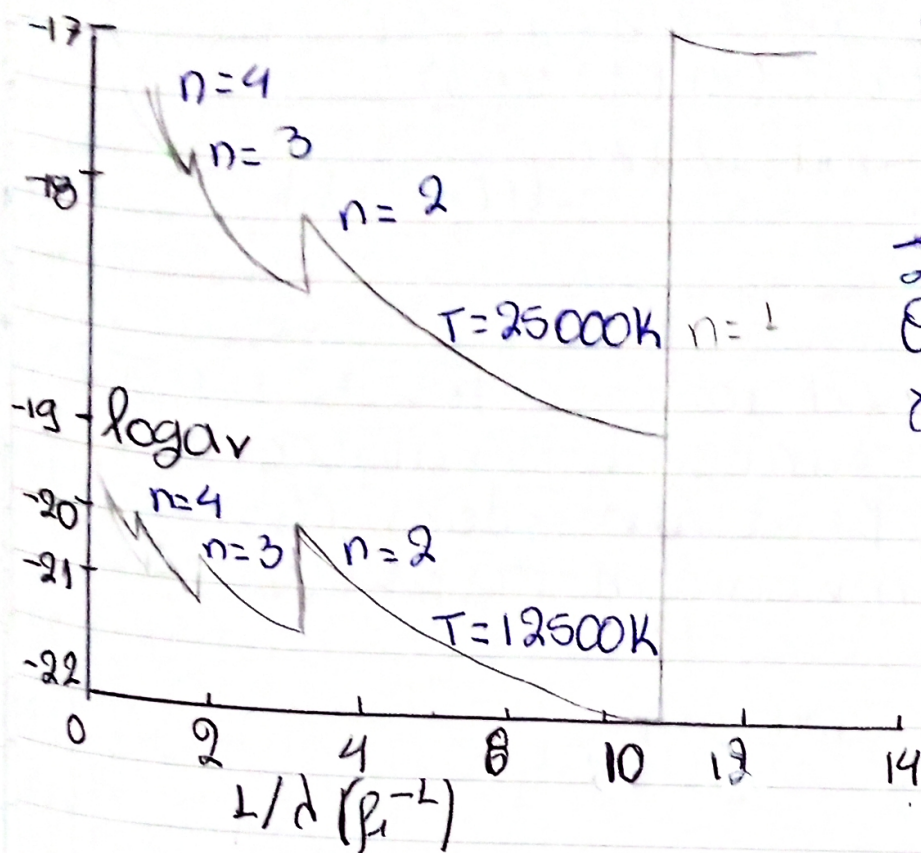 -17
n=4
n= 3
-18
n= 2
T=25000K
n= 1
-19
logaν
-20
n=4
n=3
n=2
-21
T=12500K
-22
0
2
4
8
10
12
14
1/λ (μ⁻¹)